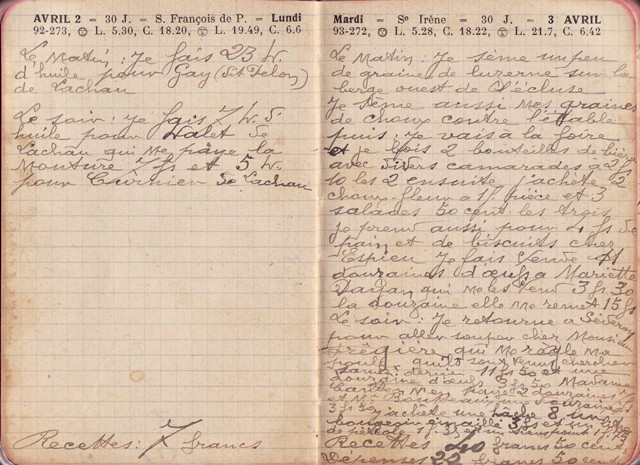 AVRIL 2 — 30 J. — S. François de P. — Lundi
92-273, L. 5.30, C. 18.20, L. 19.49, C. 6.6
Le Matin: Je fais 23 L.
d'huile pour Gay (dit Delon)
de Lachau
Le soir: Je fais 7 L. 5
huile pour de
Lachau qui me paye la
Mouture 7 fs et 5 L.
pour Curnier de Lachau
Recettes: 7 francs
Mardi — Se Irène — 30 J. — 3 AVRIL
93-272, L. 5.28, C. 18.22, L. 21.7, C. 6.42
Le Matin: Je sème un peu
de graine de luzerne sur la
berge ouest de l'écluse
Je sème aussi mes graines
de choux contre l'étable
puis: Je vais à la foire
et je bois 2 bouteilles de bière
avec divers camarades à 2 fs
10 les 2 ensuite j'achète 2
choux-fleur a 1 f. pièce et 3
salades 50 cent. les trois
je prend aussi pour 4 fs de
pain et de biscuits chez
Espieu Je fais vendre 11
douzaines d'œufs a Mariette
qui me les vend 3 fs 30
la douzaine elle me remet 15 fs
Le soir: Je retourne a Séderon
pour aller souper chez Monsieur
qui me règle ma
poule qu'ils sont venus chercher
samedi dernier 11 fs 50 et une
douzaine d'œufs 3 fs 50 Madame
me paye 2 douzaines
et Me
3 fs 50 j'achète une
bougeoir émaillé 3 fs et un litre
de pétrole
Recettes 40 francs 50 cent
Dépenses 22 francs 50 cent